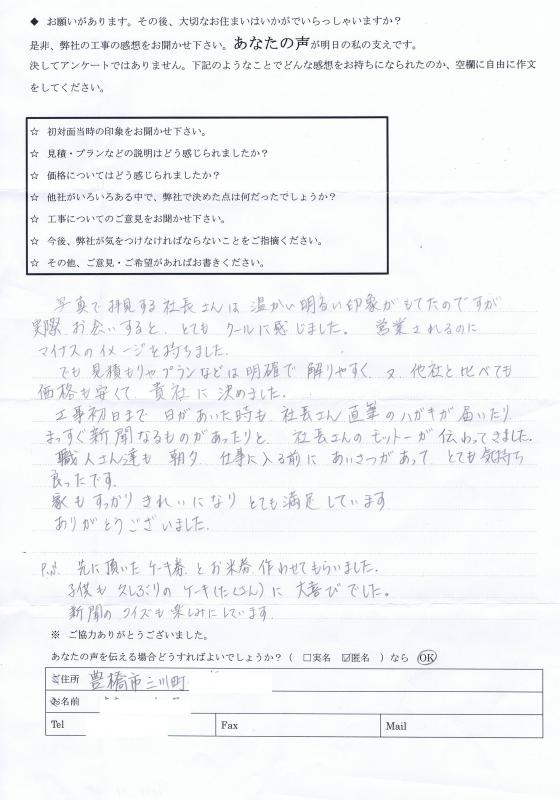 ◆ お願いがあります。その後、大切なお住まいはいかがでいらっしゃいますか？
是非、弊社の工事の感想をお聞かせ下さい。あなたの声が明日の私の支えです。
決してアンケートではありません。下記のようなことでどんな感想をお持ちになられたのか、空欄に自由に作文
をしてください。
☆ 初対面当時の印象をお聞かせ下さい。
☆ 見積・プランなどの説明はどう感じられましたか？
☆ 価格についてはどう感じられましたか？
☆ 他社がいろいろある中で、弊社で決めた点は何だったでしょうか？
☆ 工事についてのご意見をお聞かせ下さい。
☆ 今後、弊社が気をつけなければならないことをご指摘ください。
☆ その他、ご意見・ご希望があればお書きください。
写真で拝見する社長さんは 温かい明るい印象がもてたのですが
実際、お会いすると、とても クールに感じました。 営業されるのに
マイナスのイメージを持ちました。
でも 見積もりやプランなどは明確で 解りやすく、又、他社と比べても
価格も安くて、貴社に決めました。
工事初日まで 日があいた時も、社長さん直筆のハガキが届いたり
まっすぐ新聞なるものがあったりと、 社長さんのモットーが伝わってきました。
職人さん達も 朝夕、仕事に入る前に あいさつがあって、とても気持ち
良ったです。
家もすっかりきれいになり とても満足しています
ありがとうございました。
P.S. 先に頂いた ケーキ券 とお米券、使わせてもらいました。
子供も 久しぶりの ケーキ(たくさん)に 大喜びでした。
新聞の クイズも楽しみにしています。
※ ご協力ありがとうございました。
あなたの声を伝える場合どうすればよいでしょうか？（ □実名 ☑匿名 ）なら OK
ご住所 豊橋市三川町
お名前
Tel Fax Mail